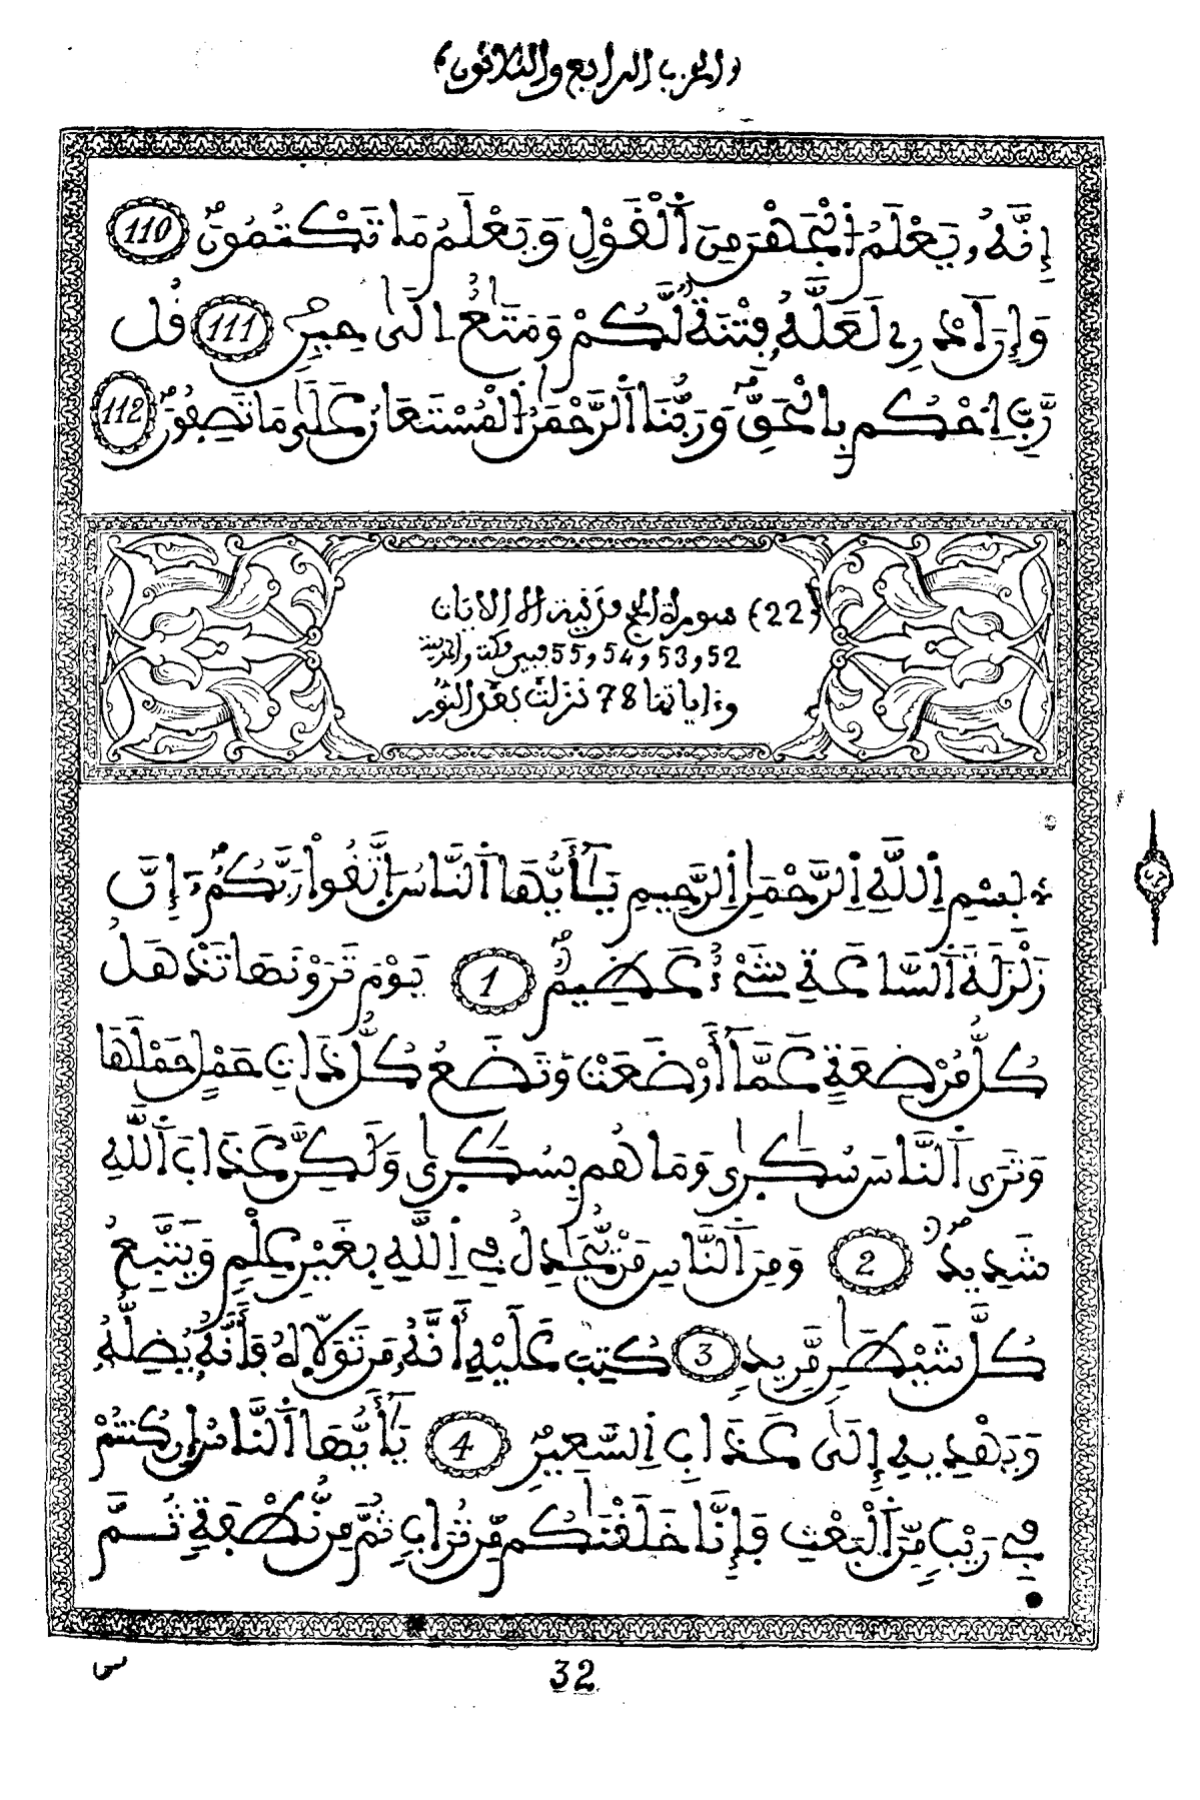 ﴿الحزب الرابع والثلاثون﴾
إِنَّهُۥ يَعْلَمُ اُ۬لْجَهْرَ مِنَ اَ۬لْقَوْلِ وَيَعْلَمُ مَا تَكْتُمُونَۖ 110
وَإِنَ اَدْرِے لَعَلَّهُۥ فِتْنَةٞ لَّكُمْ وَمَتَٰعٌ اِلَىٰ حِينٖۖ 111 قُل
رَّبِّ اِ۟حْكُم بِالْحَقِّۖ وَرَبُّنَا اَ۬لرَّحْمَٰنُ اُ۬لْمُسْتَعَانُ عَلَىٰ مَا تَصِفُونَۖ 112
(22) سورة الحج مدنية الا الايات
52 و53 و54 و55 فبين مكة والمدينة
وءاياتها 78 نزلت بعد النور
بِسْمِ اِ۬للَّهِ اِ۬لرَّحْمَٰنِ اِ۬لرَّحِيمِ يَٰٓأَيُّهَا اَ۬لنَّاسُ اُ۪تَّقُواْ رَبَّكُمُۥٓۖ إِنَّ
زَلْزَلَةَ اَ۬لسَّاعَةِ شَےْءٌ عَظِيمٞۖ 1 يَوْمَ تَرَوْنَهَا تَذْهَلُ
كُلُّ مُرْضِعَةٍ عَمَّآ أَرْضَعَتْ وَتَضَعُ كُلُّ ذَاتِ حَمْلٍ حَمْلَهَا
وَتَرَى اَ۬لنَّاسَ سُكَٰرَىٰ وَمَا هُم بِسُكَٰرَىٰ وَلَٰكِنَّ عَذَابَ اَ۬للَّهِ
شَدِيدٞۖ 2 وَمِنَ اَ۬لنَّاسِ مَنْ يُّجَٰدِلُ فِے اِ۬للَّهِ بِغَيْرِ عِلْمٖ وَيَتَّبِعُ
كُلَّ شَيْطَٰنٖ مَّرِيدٖ 3 كُتِبَ عَلَيْهِ أَنَّهُۥ مَن تَوَلَّاهُ فَأَنَّهُۥ يُضِلُّهُۥ
وَيَهْدِيهِ إِلَىٰ عَذَابِ اِ۬لسَّعِيرِۖ 4 يَٰٓأَيُّهَا اَ۬لنَّاسُ إِن كُنتُمْ
فِے رَيْبٖ مِّنَ اَ۬لْبَعْثِ فَإِنَّا خَلَقْنَٰكُم مِّن تُرَابٖ ثُمَّ مِن نُّطْفَةٖ ثُمَّ
حزب
32
س